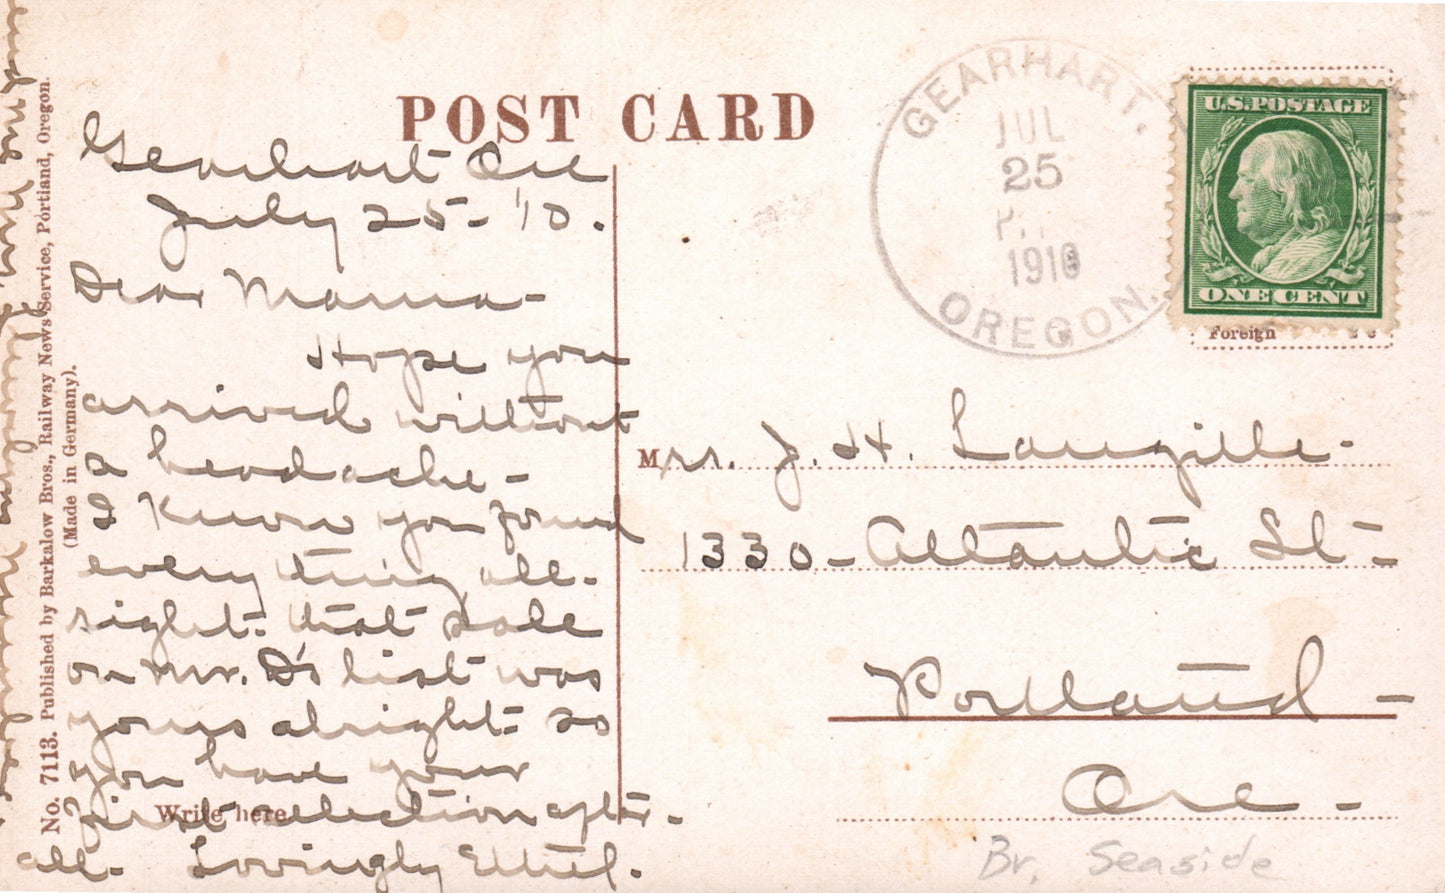 POST CARD
GEARHART.
JUL
25
1910
OREGON.
U.S. POSTAGE
ONE CENT
Foreign 2c
Gearhart Ore
July 25-'10.
Dear Mama-
Hope you
arrived without
a headache-
I know you found
every thing all-
right. that sale
on Mr. D's list was
yours alright- so
you have your
first selection aft-
all- Lovingly Ethel.
Write here
Mrs. J. H. Langille-
1330-Atlantic St-
Portland-
Ore-
Br. Seaside
No. 7113. Published by Barkalow Bros., Railway News Service, Portland, Oregon.
(Made in Germany).